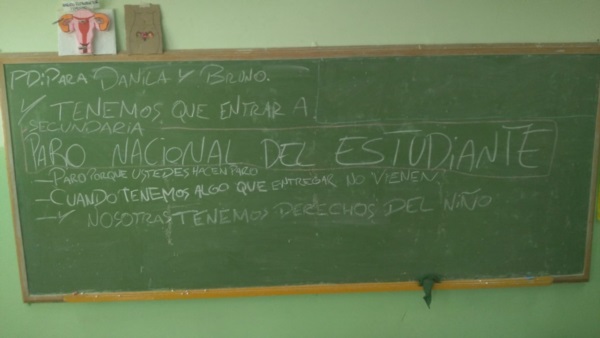 PD: PARA DANILA Y BRUNO.
Y TENEMOS QUE ENTRAR A
SECUNDARIA
PARO NACIONAL DEL ESTUDIANTE
- PARO PORQUE USTEDES HACEN PARO
- CUANDO TENEMOS ALGO QUE ENTREGAR NO VIENEN
- Y NOSOTRAS TENEMOS DERECHOS DEL NIÑO